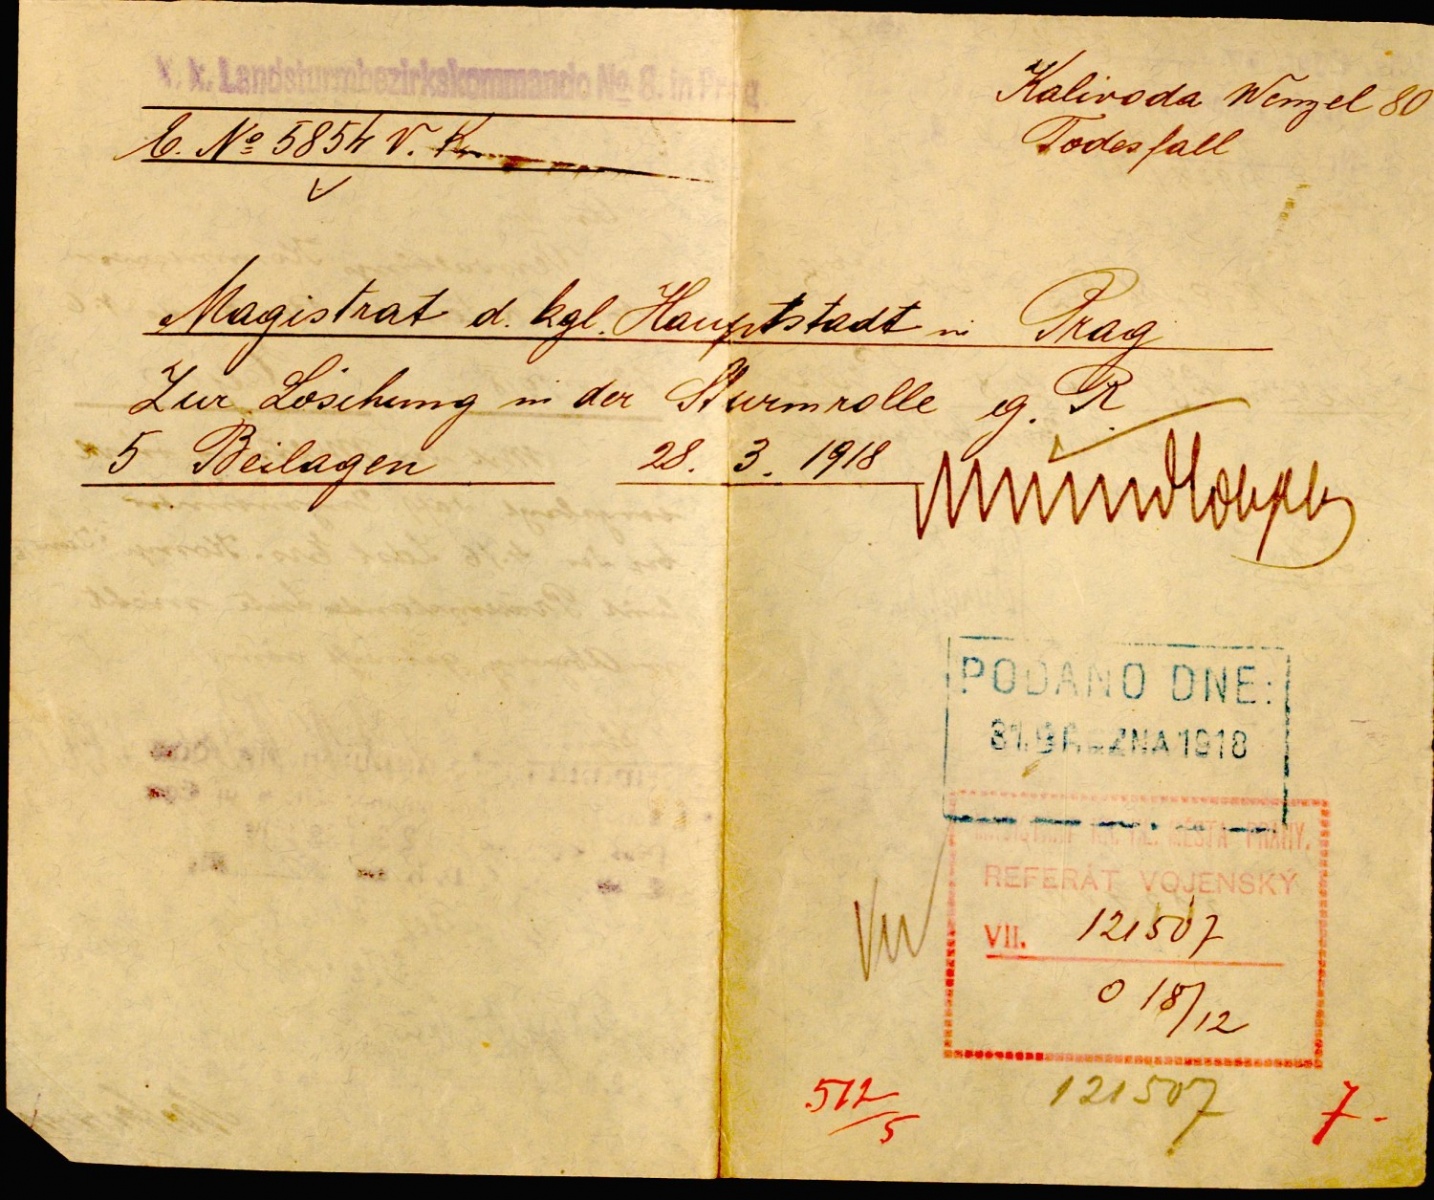 k. k. Landsturmbezirkskommando № 8. in Prag
Kalivoda Wenzel 80
Todesfall
E. № 5854 V. K.
Magistrat d. kgl. Hauptstadt in Prag
Zur Löschung in der Sturmrolle eg. R.
5 Beilagen 28. 3. 1918
PODÁNO DNE:
31. BŘEZNA 1918
MĚSTA PRAHY.
REFERÁT VOJENSKÝ
VII. 121507
0 18/12
512/5
121507
7.